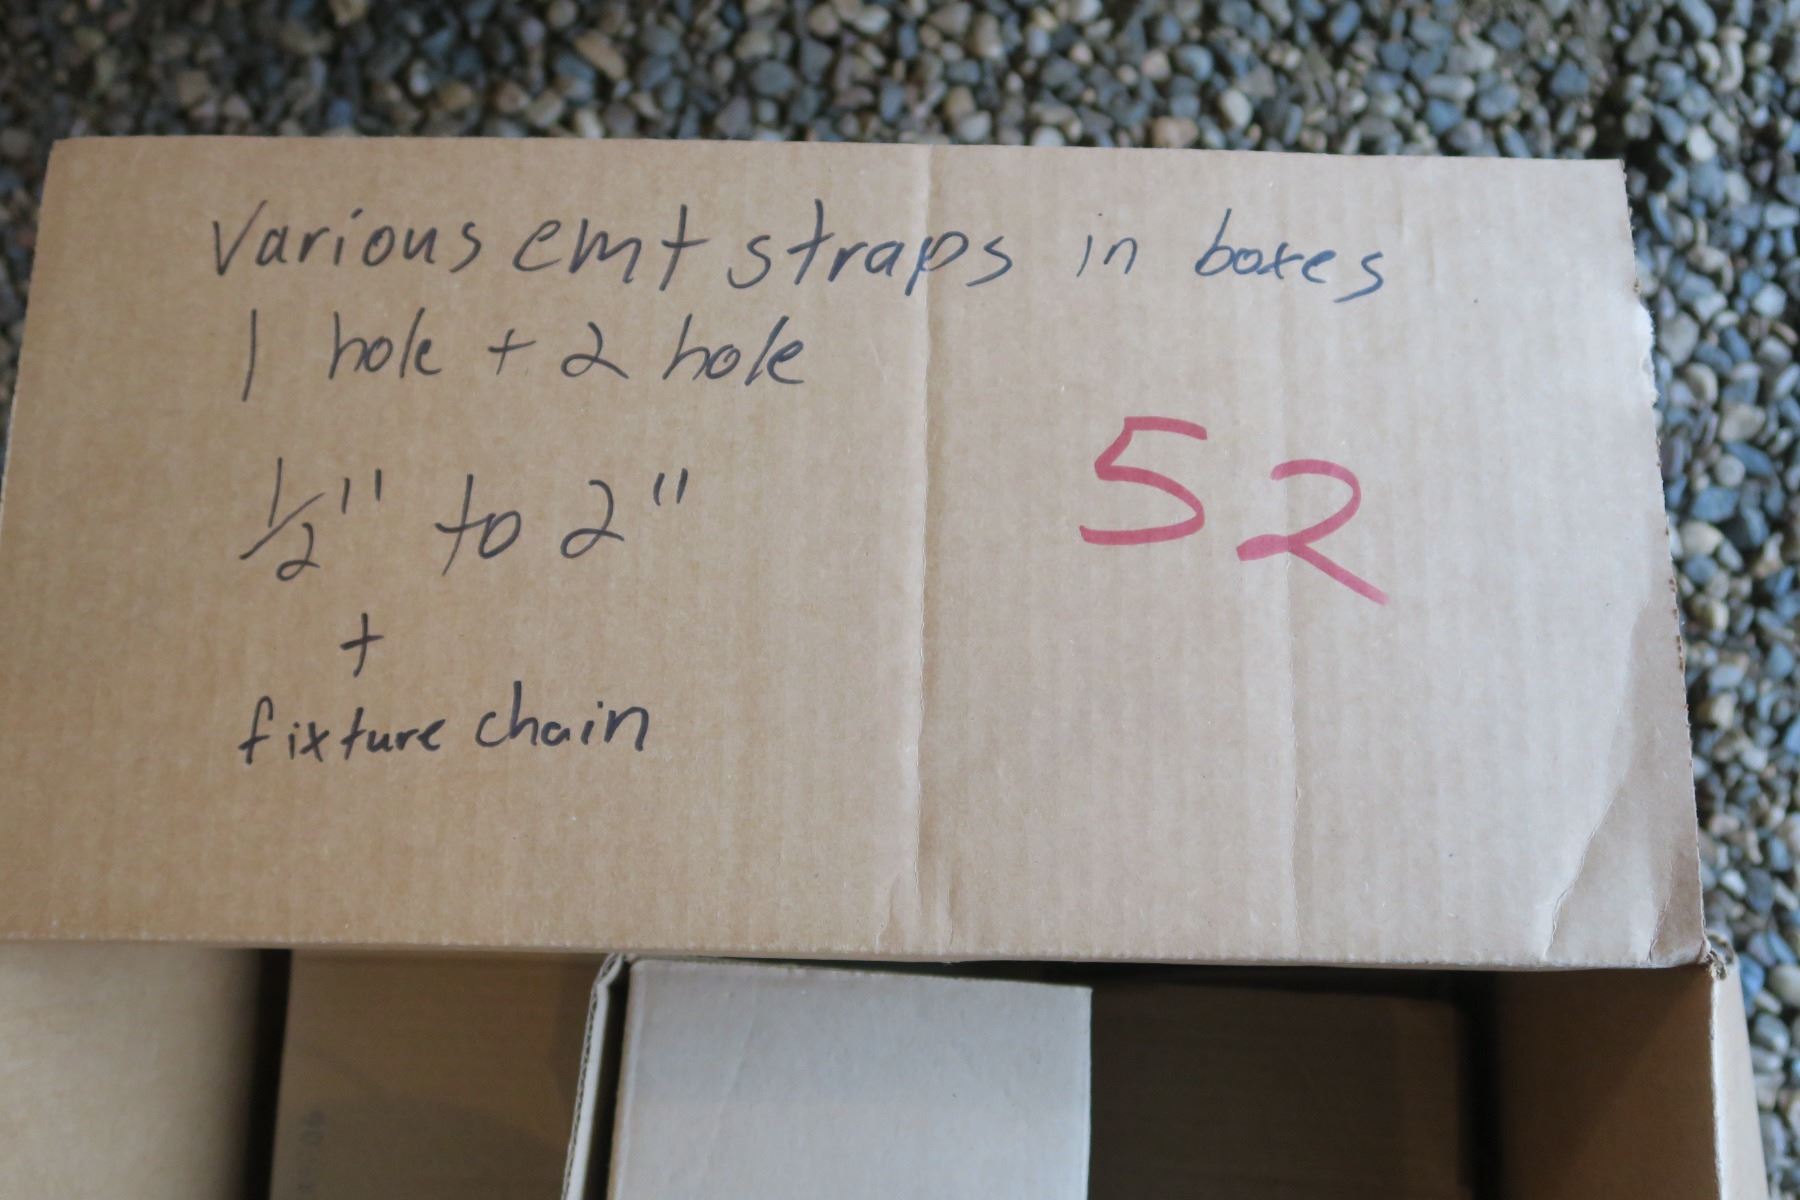 Various emt straps in boxes
1 hole + 2 hole
½" to 2"
52
+
fixture chain